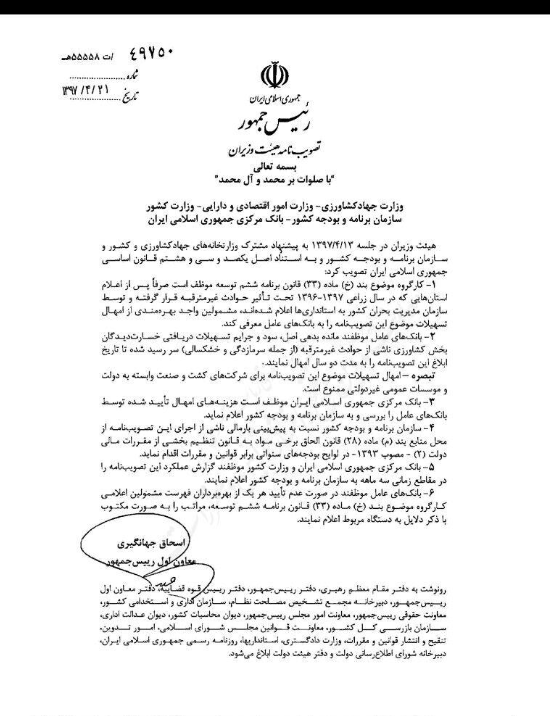 ۴۹۷۵۰ /ت ۵۵۵۵۸هـ
شماره
تاریخ ۱۳۹۷/۴/۲۱
جمهوری اسلامی ایران
رئیس جمهور
تصویب نامه هیئت وزیران
بسمه تعالی
"با صلوات بر محمد و آل محمد"
وزارت جهادکشاورزی- وزارت امور اقتصادی و دارایی- وزارت کشور
سازمان برنامه و بودجه کشور- بانک مرکزی جمهوری اسلامی ایران
هیئت وزیران در جلسه ۱۳۹۷/۴/۱۳ به پیشنهاد مشترک وزارتخانه‌های جهادکشاورزی و کشور و
سازمان برنامه و بودجه کشور و به استناد اصل یکصد و سی و هشتم قانون اساسی
جمهوری اسلامی ایران تصویب کرد:
۱- کارگروه موضوع بند (خ) ماده (۳۳) قانون برنامه ششم توسعه موظف است صرفاً پس از اعلام
استان‌هایی که در سال زراعی ۱۳۹۷-۱۳۹۶ تحت تأثیر حوادث غیرمترقبه قرار گرفته و توسط
سازمان مدیریت بحران کشور به استانداری‌ها اعلام شده‌اند، مشمولین واجد بهره‌مندی از امهال
تسهیلات موضوع این تصویب‌نامه را به بانک‌های عامل معرفی کند.
۲- بانک‌های عامل موظفند مانده بدهی اصل، سود و جرایم تسهیلات دریافتی خسارت‌دیدگان
بخش کشاورزی ناشی از حوادث غیرمترقبه (از جمله سرمازدگی و خشکسالی) سر رسید شده تا تاریخ
ابلاغ این تصویب‌نامه را به مدت دو سال امهال نمایند.
تبصره – امهال تسهیلات موضوع این تصویب‌نامه برای شرکت‌های کشت و صنعت وابسته به دولت
و موسسات عمومی غیردولتی ممنوع است.
۳- بانک مرکزی جمهوری اسلامی ایران موظف است هزینه‌های امهال تأیید شده توسط
بانک‌های عامل را بررسی و به سازمان برنامه و بودجه کشور اعلام نماید.
۴- سازمان برنامه و بودجه کشور نسبت به پیش‌بینی بارمالی ناشی از اجرای این تصویب‌نامه از
محل منابع بند (م) ماده (۲۸) قانون الحاق برخی مواد به قانون تنظیم بخشی از مقررات مالی
دولت (۲) - مصوب ۱۳۹۳- در لوایح بودجه‌های سنواتی برابر قوانین و مقررات اقدام نماید.
۵- بانک مرکزی جمهوری اسلامی ایران و وزارت کشور موظفند گزارش عملکرد این تصویب‌نامه را
در مقاطع زمانی سه ماهه به سازمان برنامه و بودجه کشور اعلام نمایند.
۶- بانک‌های عامل موظفند در صورت عدم تأیید هر یک از بهره‌برداران فهرست مشمولین اعلامی
کارگروه موضوع بند (خ) ماده (۳۳) قانون برنامه ششم توسعه، مراتب را به صورت مکتوب
با ذکر دلایل به دستگاه مربوط اعلام نمایند.
اسحاق جهانگیری
معاون اول رییس‌جمهور
رونوشت به دفتر مقام معظم رهبری، دفتر رییس‌جمهور، دفتر رییس قوه قضاییه، دفتر معاون اول
رییس‌جمهور، دبیرخانه مجمع تشخیص مصلحت نظام، سازمان اداری و استخدامی کشور،
معاونت حقوقی رییس‌جمهور، معاونت امور مجلس رییس‌جمهور، دیوان محاسبات کشور، دیوان عدالت اداری،
سازمان بازرسی کل کشور، معاونت قوانین مجلس شورای اسلامی، امور تدوین،
تنقیح و انتشار قوانین و مقررات، وزارت دادگستری، استانداریها، روزنامه رسمی جمهوری اسلامی ایران،
دبیرخانه شورای اطلاع‌رسانی دولت و دفتر هیئت دولت ابلاغ می‌شود.